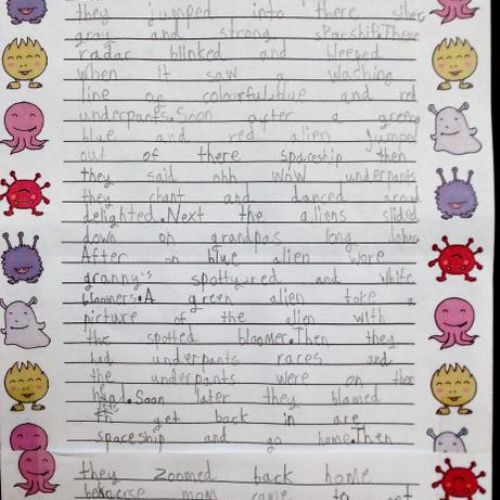 they jumped into there silver
gray and strong spaceship.There
radar blinked and bleeped
when it saw a waching
line of colourful,blue and red
underpants.Soon after a green
blue and red alien jumped
out of there spaceship then
they said ohh wow underpants
they chant and danced aroud
delighted.Next the aliens slided
down on grandpas long Johns
After on blue alien wore
granny's spotty,red and white
bloomers.A green alien toke a
picture of the alien with
the spotted bloomer.Then they
had underpants races and
the underpants were on there
head.Soon later they blamed
lets get back in are
spaceship and go home.Then
they zoomed back home
because mom came to